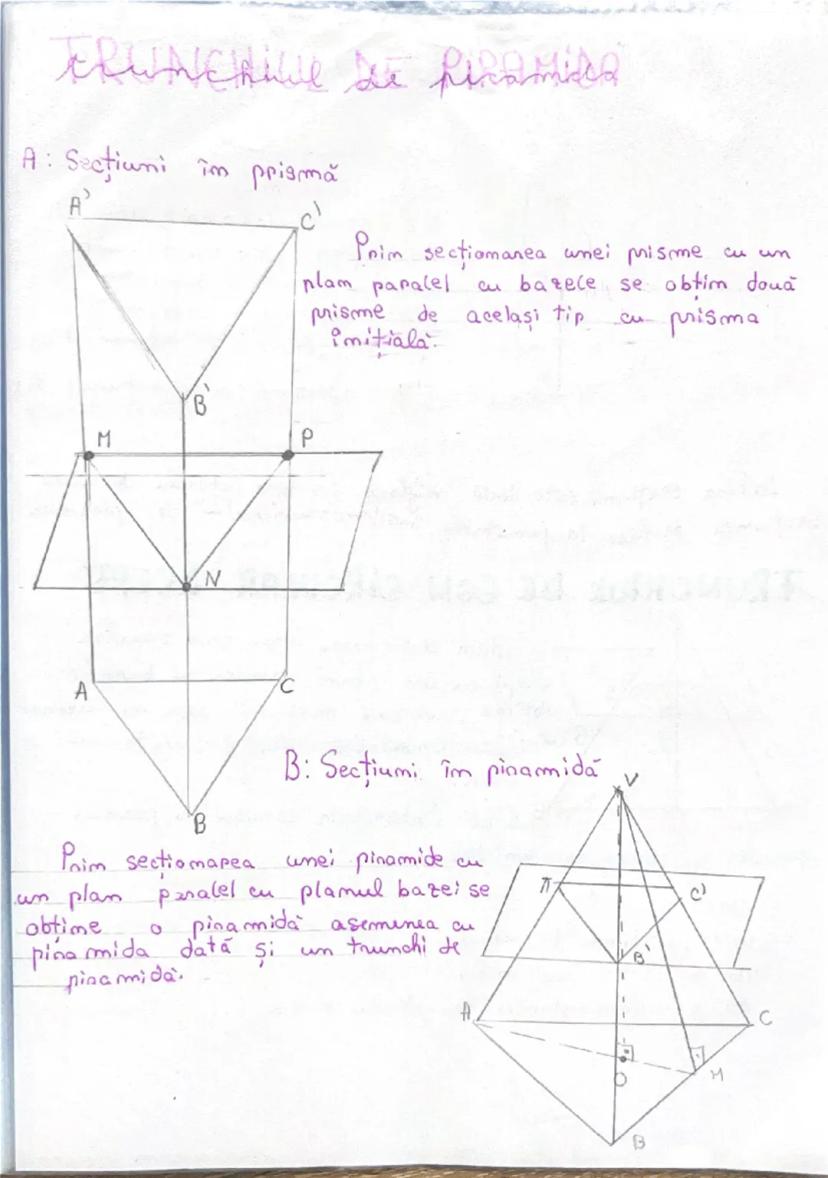 TRUNCHIUL DE PIRAMIDĂ
trunchiul de piramidă
A: Secțiuni în prismă
A'
C'
Prin secționarea unei prisme cu un
plan paralel cu bazele se obțin două
prisme de același tip cu prisma
inițială.
B'
M
P
N
A
C
B: Secțiuni în piramidă
V
B
Prin secționarea unei piramide cu
un plan paralel cu planul bazei se
obține o piramidă asemenea cu
piramida dată și un trunchi de
piramidă.
π
C'
B'
A
C
O
M
B
TRUNCHIUL DE CON CIRCULAR DREPT